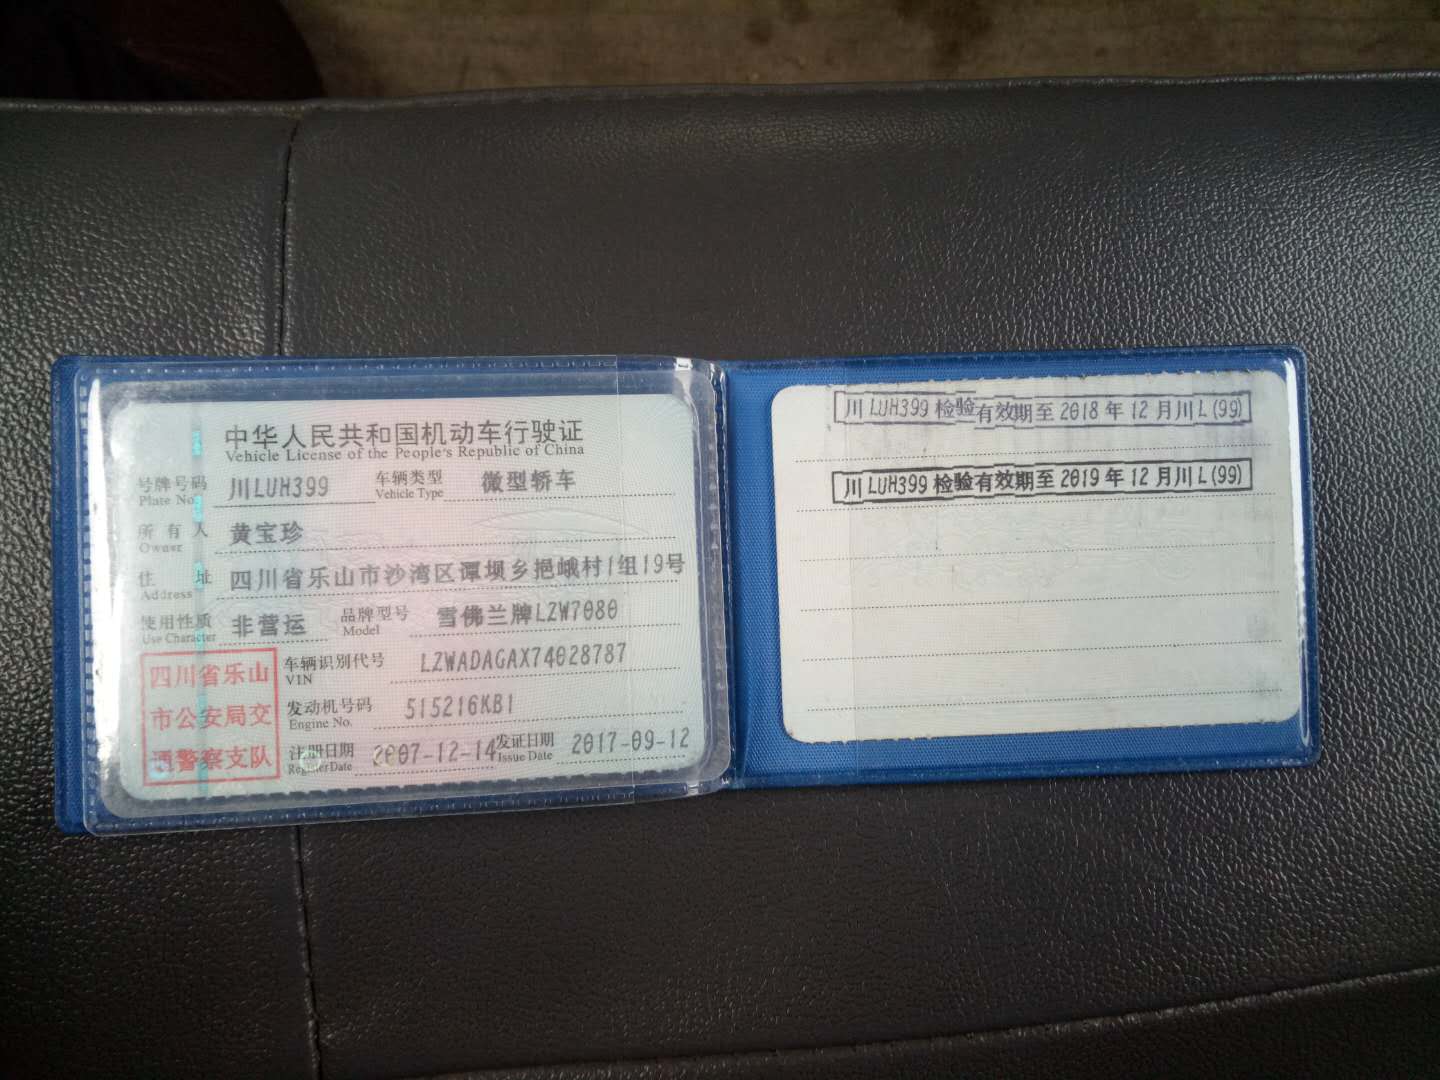 中华人民共和国机动车行驶证
Vehicle License of the People's Republic of China
号牌号码 川LUH399 车辆类型 微型轿车
Plate No. Vehicle Type
所有人 黄宝珍
Owner
住址 四川省乐山市沙湾区谭坝乡挹峨村1组19号
Address
使用性质 非营运 品牌型号 雪佛兰牌LZW7080
Use Character Model
四川省乐山
市公安局交
通警察支队
车辆识别代号 LZWADAGAX74028787
VIN
发动机号码 515216KB1
Engine No.
注册日期 2007-12-14 发证日期 2017-09-12
Register Date Issue Date
川LUH399检验有效期至2018年12月川L(99)
川LUH399检验有效期至2019年12月川L(99)